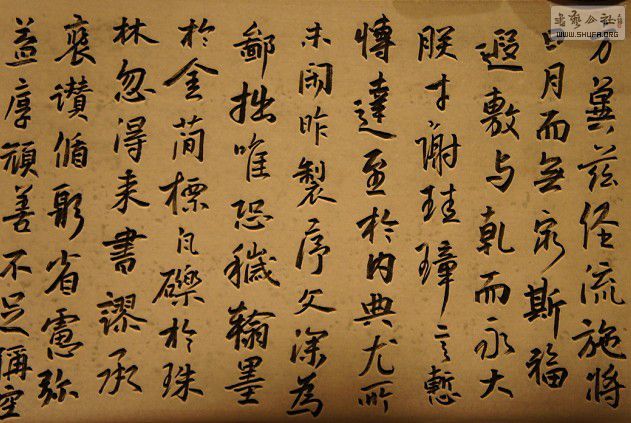 書藝公社
WWW.SHUFA.ORG
方冀茲経流施將
日月而無窮斯福
遐敷与乾而永大
朕才謝珪璋言慙
博達至於内典尤所
未閑昨製序文深為
鄙拙唯恐穢翰墨
於金簡標瓦礫於珠
林忽得来書謬承
褒讚循躬省慮弥
益厚顔善不足稱空